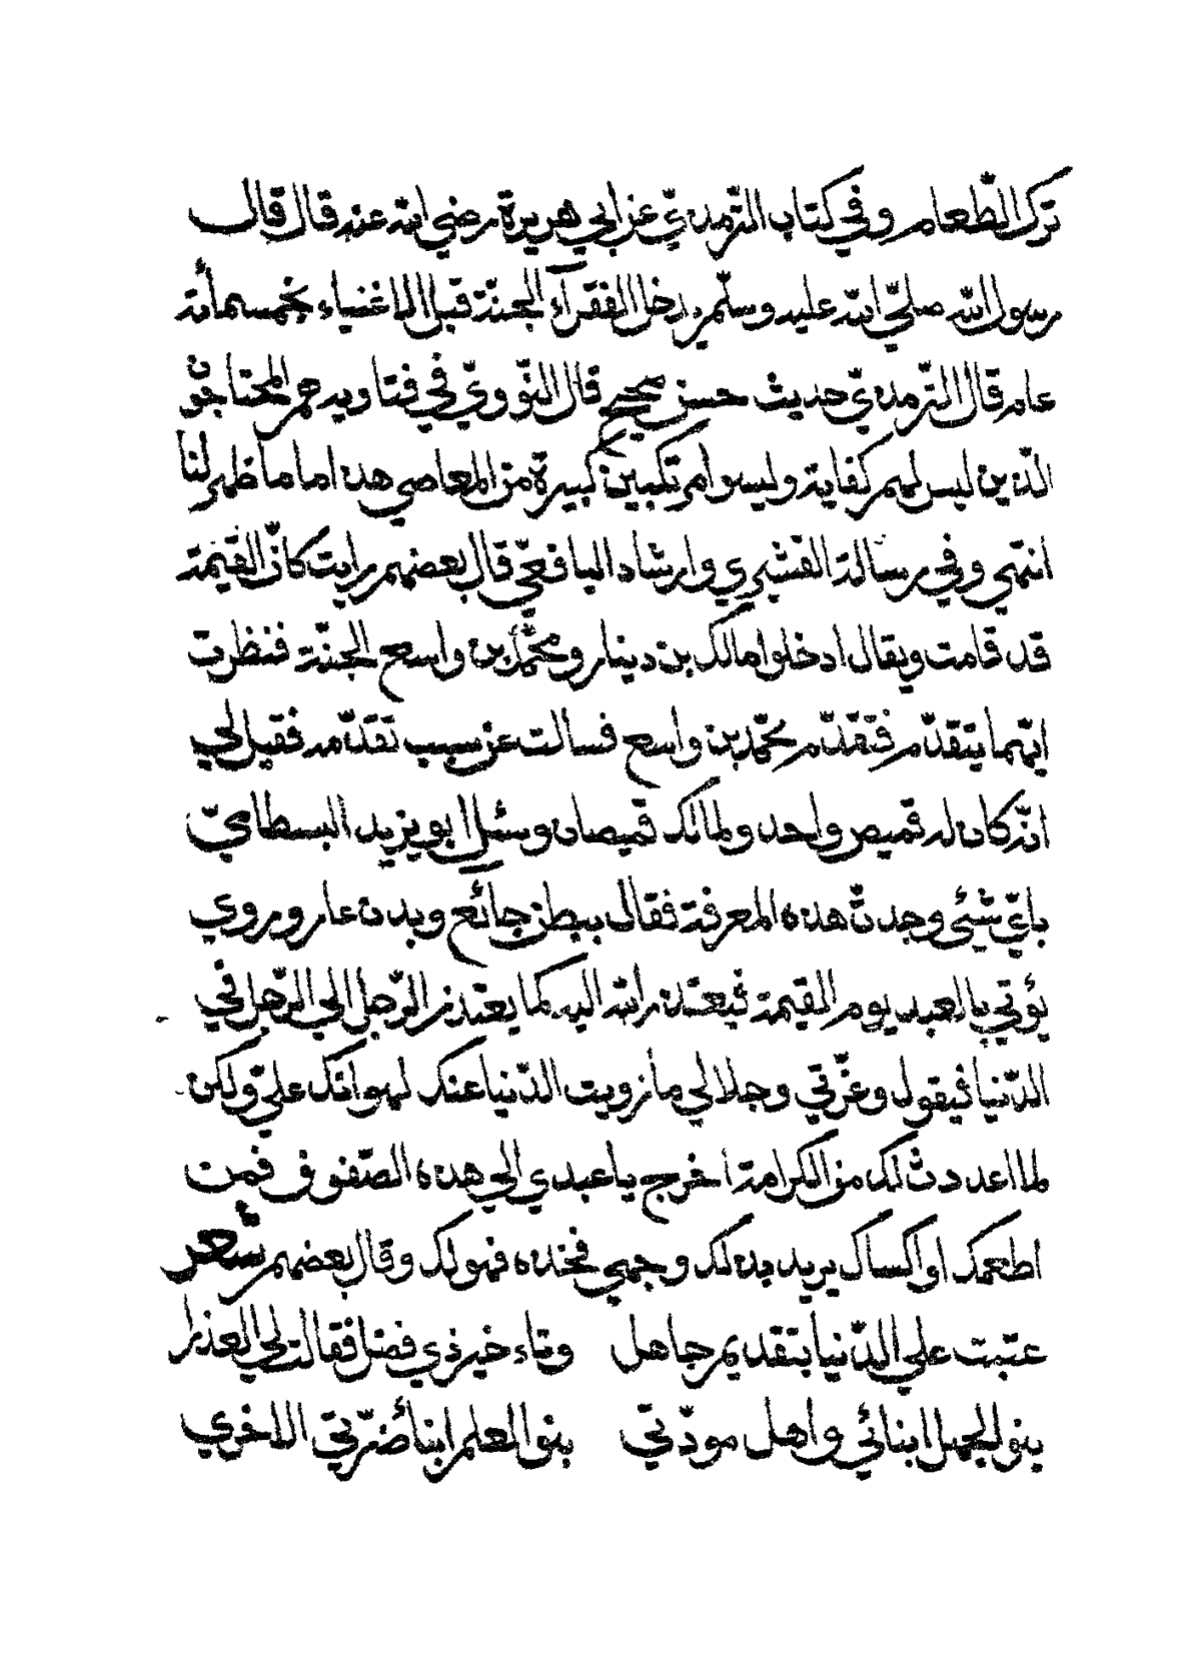 ترك الطّعام وفي كتاب التّرمذيّ عن ابي هريرة رضي الله عنه قال قال
رسول الله صلّي الله عليه وسلّم يدخل الفقرآء الجنّة قبل الاغنياء بخمسمأته
عام قال التّرمذيّ حديث حسن صحيح قال النّوويّ في فتاويه هم المحتاجون
الّذين ليس لهم كفاية وليسوا مرتكبين كبيرة من المعاصي هذا ما ما ظهر لنا
انتهي وفي رسالة القشيري وارشاد اليافعيّ قال بعضهم رايت كانّ القيمة
قد قامت ويقال ادخلوا مالك بن دينار ومحمّد بن واسع الجنّة فنظرت
ايّهما يتقدّم فتقدّم محمّد بن واسع فسالت عن سبب تقدّمه فقيل لي
انّه كان له قميص واحد ولمالك قميصان وسئل ابو يزيد البسطاميّ
بايّ شيئ وجدتّ هذه المعرفة فقال ببطن جائع وبدن عار وروي
يؤتي بالعبد يوم القيمة فيعتذر الله اليه كما يعتذر الرّجل الي الرّجل في
الدّنيا فيقول وعزّتي وجلالي ما زويت الدّنيا عنك لهوانك عليّ ولكن
لما اعددتّ لك من الكرامة اخرج يا عبدي الي هذه الصّفوف فمن
اطعمك او اكساك يريد بذلك وجهي فخذه فهو لك وقال بعضهم شعر
عتبت علي الدّنيا بتقديم جاهل وتاء خير ذي فضل فقالت لي العذرا
بنو الجهل ابنائي واهل مودّتي بنو العلم ابناء ضرّتي الاخري